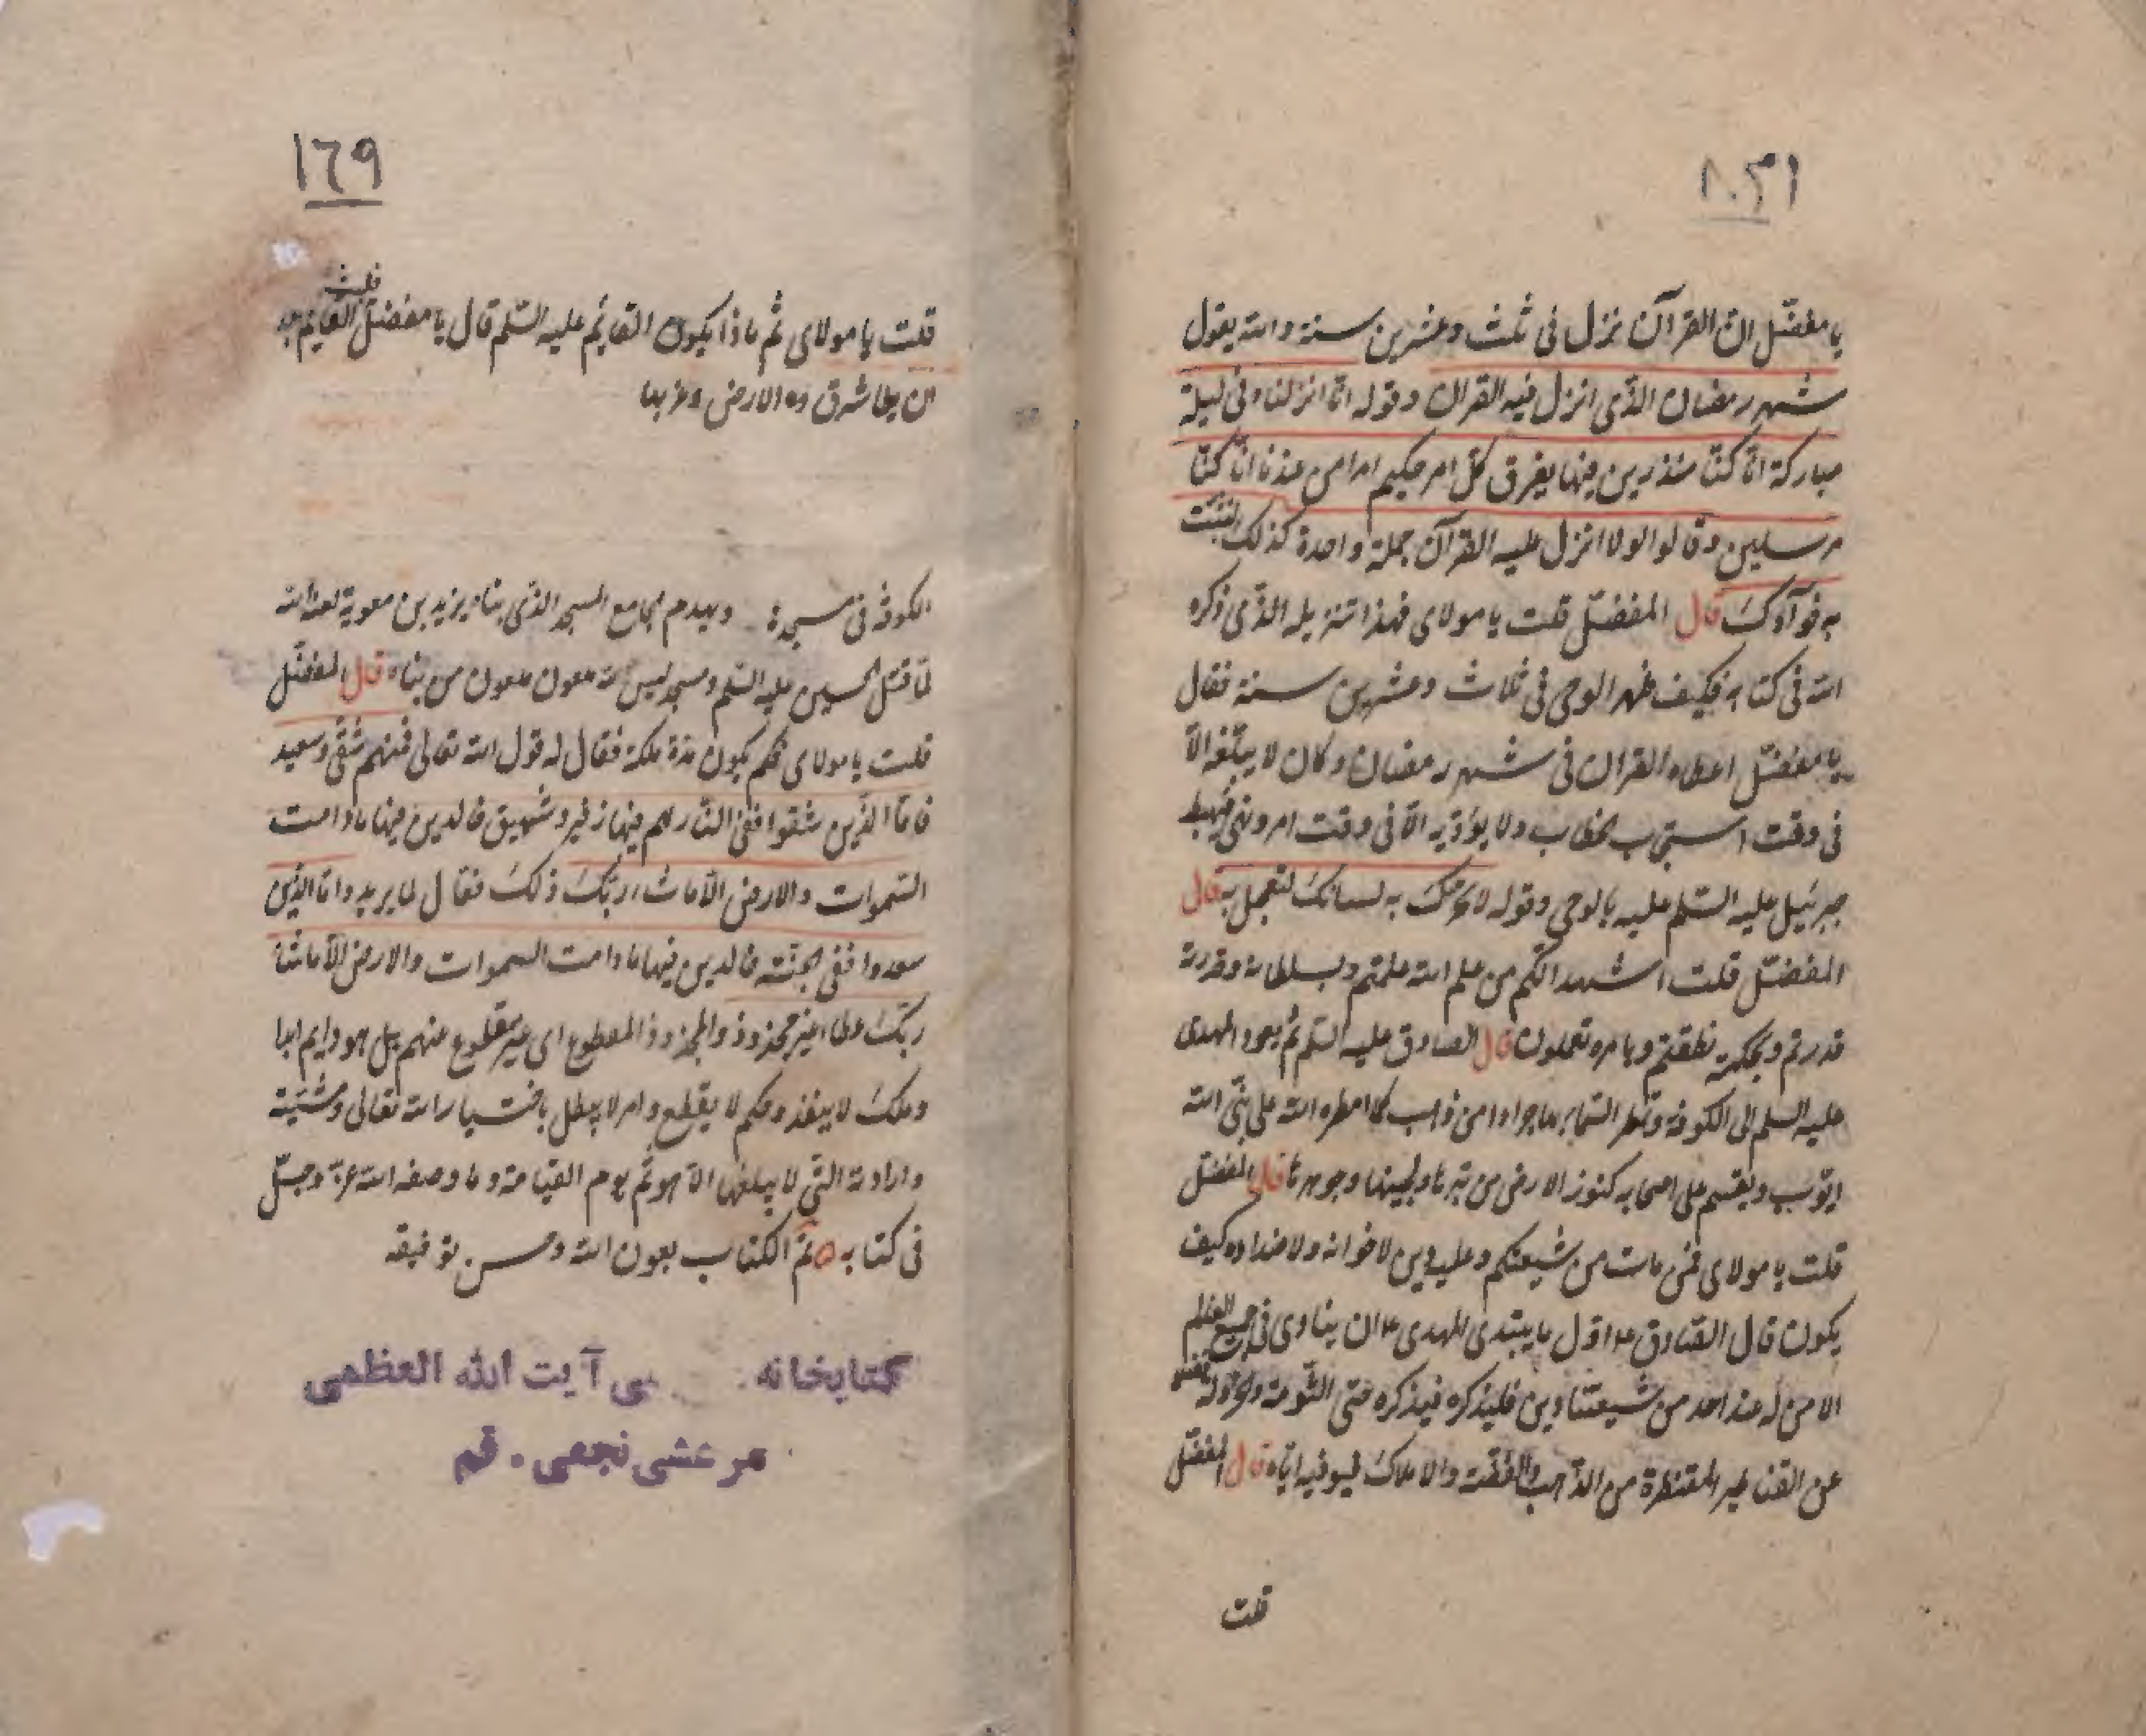 يا مفضّل انّ القرآن نزل فى ثلث وعشرين سنة والله يقول
شهر رمضان الذّى انزل فيه القران وقوله انّا انزلناه فى ليلة
مباركة انّا كنّا منذرين فيها يفرق كلّ امر حكيم امرا من عندنا انّا كنّا
مرسلين وقالوا لولا انزل عليه القرآن جملة واحدة كذلك لنثبّت
به فؤآدك قال المفضّل قلت يا مولاى فهذا تنزيله الذّى ذكره
الله فى كتابه فكيف ظهر الوحى فى ثلاث وعشرين سنة فقال
يا مفضّل اعطاه القران فى شهر رمضان وكان لا يبلّغه الّا
فى وقت استيجاب الخطاب ولا يؤدّيه الّا فى وقت امر ونهى فهبط
جبرئيل عليه السّلم عليه بالوحى وقوله لا تحرّك به لسانك لتعجل به قال
المفضّل قلت اشهد انّكم من علم الله علمتم وبسلطانه وقدرته
قدرتم وبحكمه نطقتم وبامره تعملون قال الصادق عليه السّلم ثمّ يعود المهدى
عليه السلم الى الكوفه وتمطر السّماء بها جرادا من ذهب كما امطره الله على بنىّ الله
ايّوب ويقسم على اصحابه كنوز الارض من تبرها ولجينها وجوهرها قال المفضّل
قلت يا مولاى فمن مات من شيعتكم وعليه دين لاخوانه ولاضداده كيف
يكون قال الصّادق ع اوّل ما يبتدى المهدى ع ان ينادى فى جميع العالم
الا من له عند احد من شيعتنا دين فليذكره فيذكره حتى الثّومة والخردلة فضلا
عن القناطير المقنطرة من الذّهب والفضّة والاملاك فيوفيه ايّاه قال المفضّل
قلت
١٦٩
قلت يا مولاى ثمّ ماذا يكون القايم عليه السّلم قال يا مفضّل القايم بعد
ان يطا شرق الارض وغربها
الكوفة فى مسجدها ويهدم الجامع المسجد الذّى بناه يزيد بن معوية لعنه الله
لمّا قتل الحسين عليه السّلم ومسجد ليس لله ملعون ملعون من بناه قال المفضّل
قلت يا مولاى فكم يكون مدّة ملكه فقال له قول الله تعالى فمنهم شقّى وسعيد
فامّا الذّين شقوا ففى النّار لهم فيها زفير وشهيق خالدين فيها ما دامت
السّموات والارض الّا ما شاء ربّك انّ ربّك فعّال لما يريد وامّا الذّين
سعدوا ففى الجنّة خالدين فيها ما دامت السموات والارض الّا ما شاء
ربّك عطاء غير مجذوذ والمجذوذ المقطوع اى غير مقطوع عنهم بل هو دايم ابدا
وملك لا ينفذ وحكم لا يقطع وامر لا يبطل باختيار الله تعالى ومشيّته
وارادته التّى لا يعلمها الّا هو ثمّ يوم القيامة وما وصفه الله عزّ وجلّ
فى كتابه تمّ الكتاب بعون الله وحسن توفيقه
كتابخانه آيت الله العظمى
مرعشى نجفى - قم